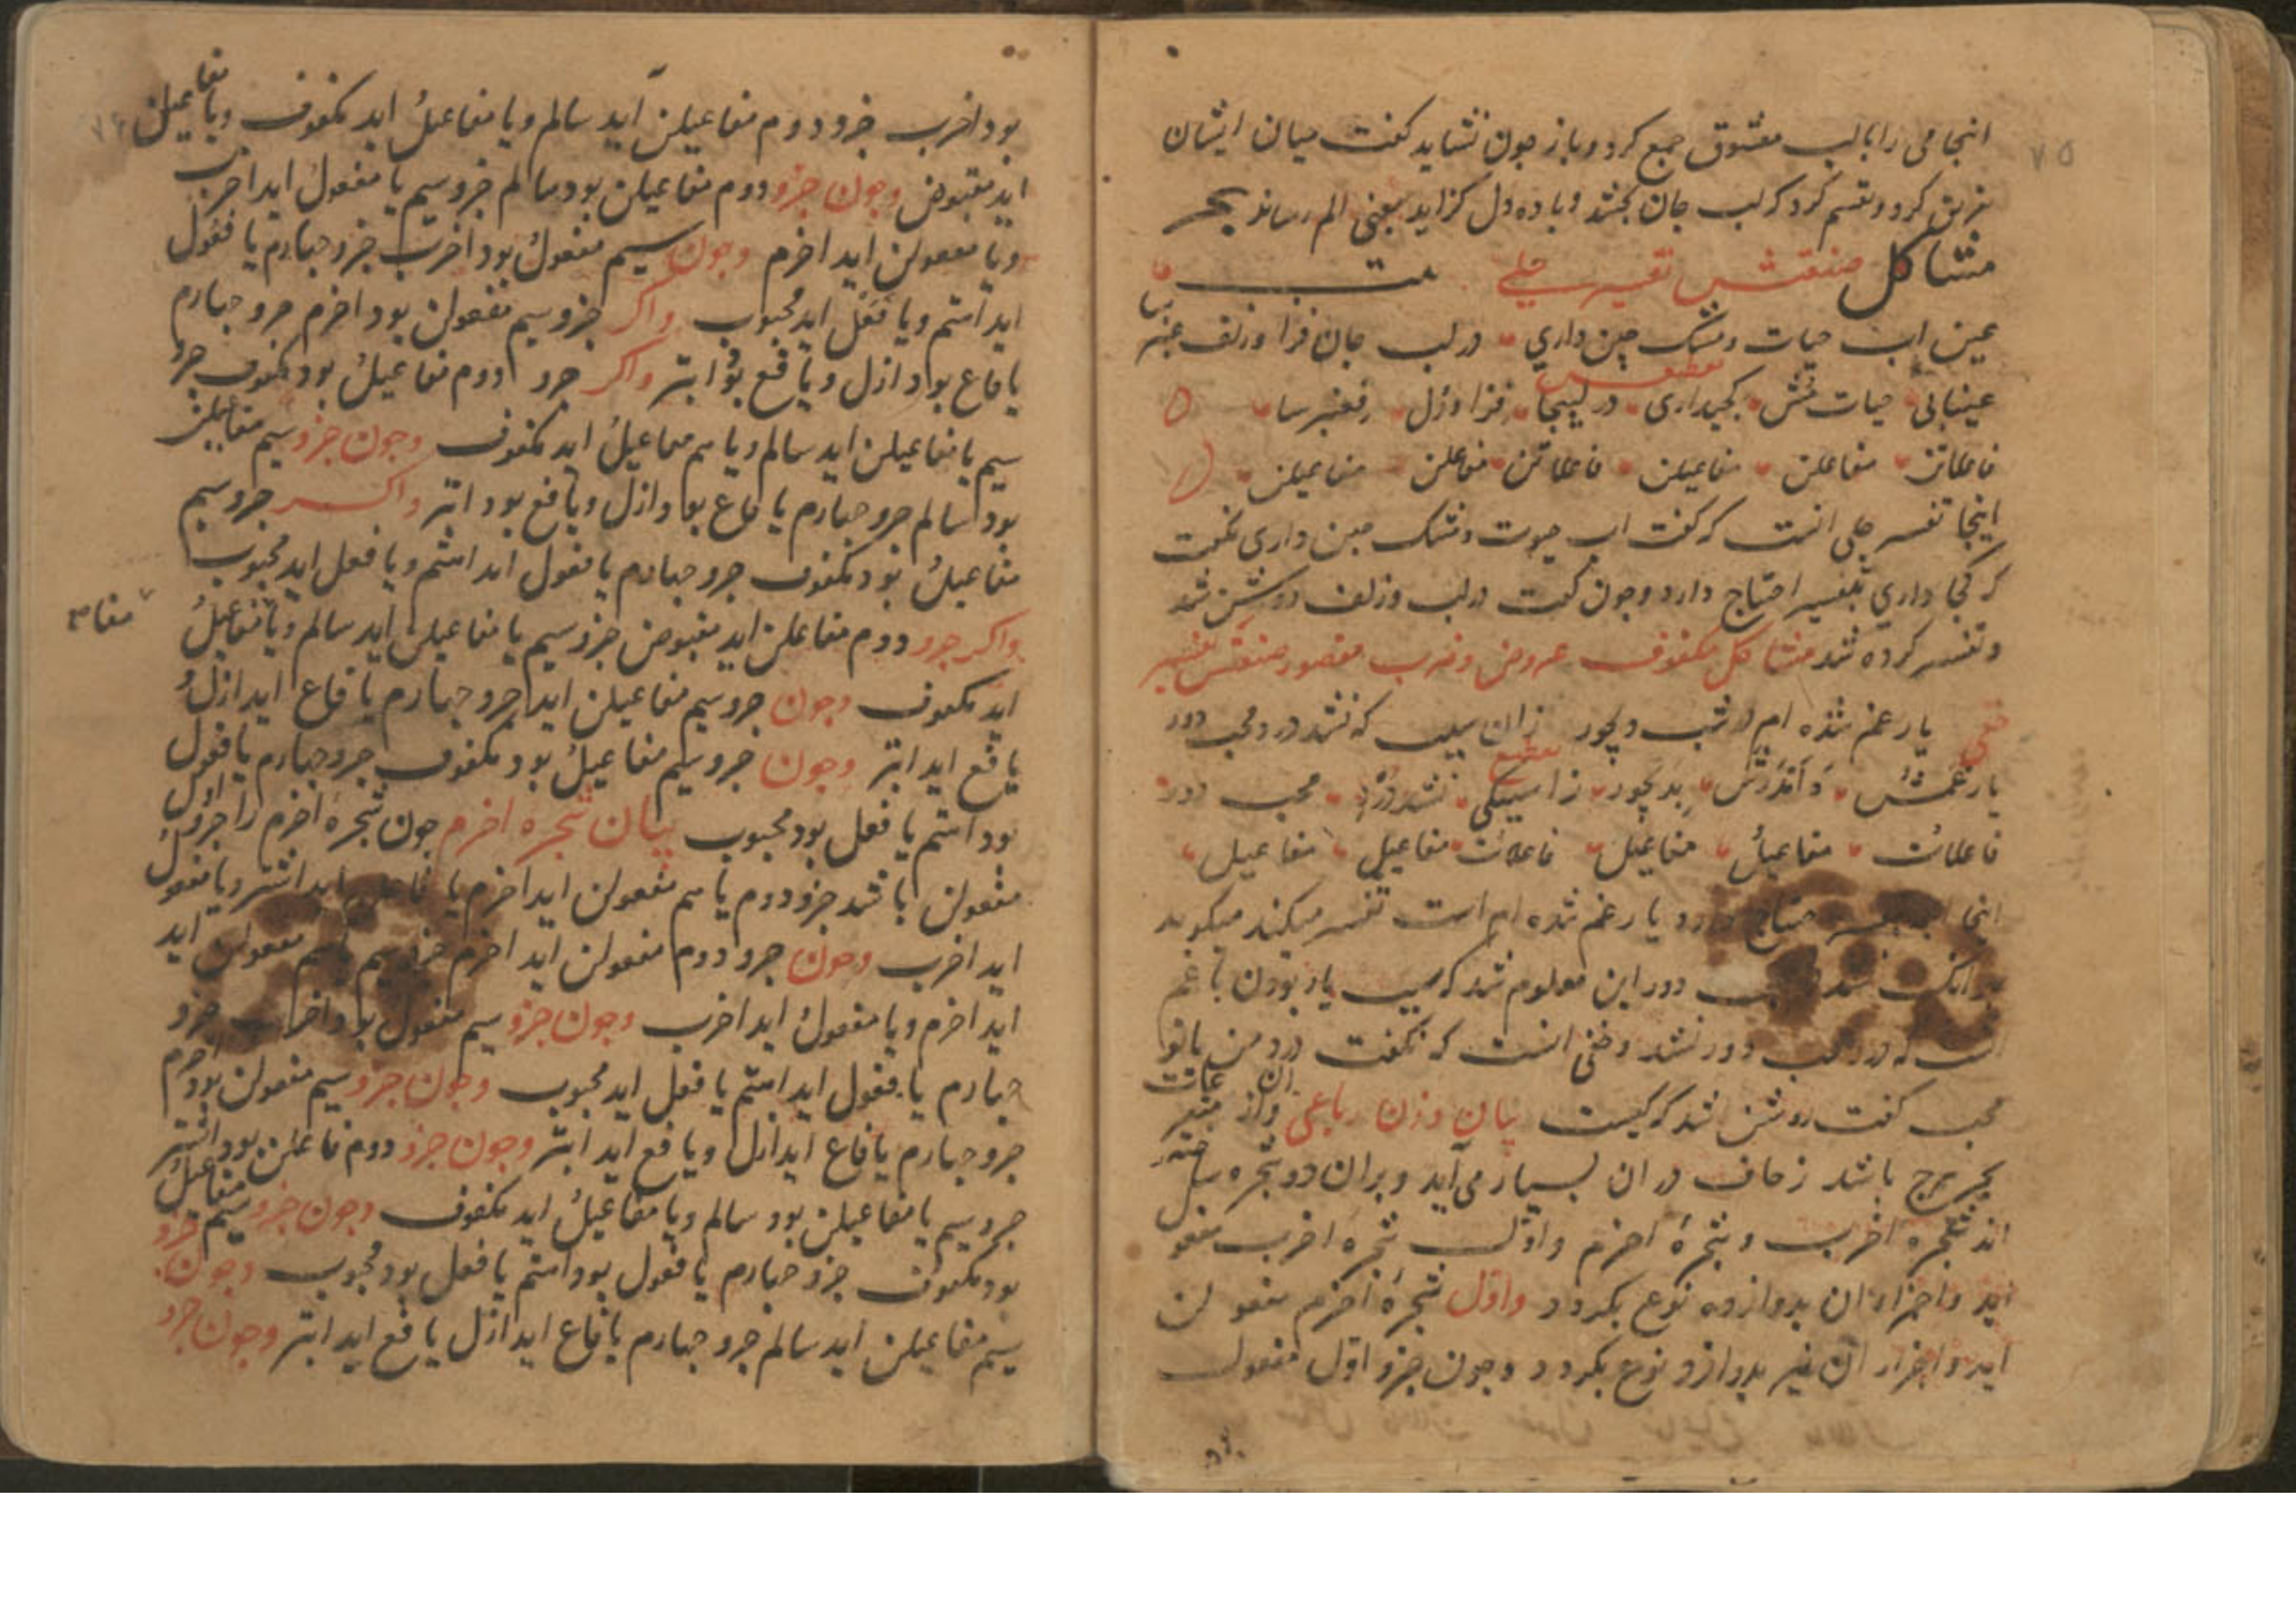 ٧٥
اینجا می را با لب معشوق جمع کرد و باز چون نشاید گفت میان ایشان
تفریق کرد و تقسیم کرد که لب جان بخشد و باده دل گزاید یعنی الم رساند بحر
متشاکل صنعتش تفسیر جلی
عین اب حیات و مشک چین داری در لب جان فزا و زلف عنبر سا
تقطیعش
عینابی حیات مش کچیداری در لبیجا فزا وزل فعنبر سا
فاعلاتن مفاعلن مفاعیلن فاعلاتن مفاعلن مفاعیلن
اینجا تفسیر جلی انست که گفت اب حیوت و مشک چین داری نگفت
که کجا داری بتفسیر احتیاج دارد و چون گفت در لب و زلف روشن شد
و تفسیر کرده شد متشاکل مکفوف عروض و ضرب مقصور صنعتش تفسیر
خفی یار غم شده ام در شب دیجور زان سبب که نشد درد محب دور
تقطیع
یارغمش دامدرش بدیجور زاسببکی نشددرد محب دور
فاعلات مفاعیل مفاعیل فاعلات مفاعیل مفاعیل
اینجا انچه بتفسیر محتاج دارد یار غم شده ام است تفسیر میکند میگوید
بدانک نشد محب دور این معلوم شد که سبب یار بودن با غم
است که درد محب دور نشد و خفی انست که نگفت درد من یا تو
محب گفت روشن نشد که کیست بیان وزن رباعی وان از مثمنات
بحر هزج باشد زحاف در ان بسیار می آید و بران دو شجره ساخته
اند شجره اخرب و شجرهٔ اخرم و اول شجره اخرب مفعول
اید و اجزاء ان بدوازده نوع بگردد و اول شجرهٔ اخرم مفعولن
اید و اجزاء ان نیز بدوازده نوع بگردد و چون جزو اول مفعول
بود اخرب جزو دوم مفاعیلن آید سالم و یا مفاعیل اید مکفوف و یا مفاعلن
اید مقبوض و چون جزو دوم مفاعیلن بود سالم جزو سیم یا مفعول اید اخرب
و یا مفعولن اید اخرم و چون سیم مفعول بود اخرب جزو چهارم یا فعول
اید اهتم و یا فعل اید مجبوب و اکر جزو سیم مفعولن بود اخرم جزو چهارم
یا فاع بود ازل و یا فع بود ابتر و اکر جزو دوم مفاعیل بود مکفوف جزو
سیم یا مفاعیلن اید سالم و یا هم مفاعیل اید مکفوف و چون جزو سیم مفاعیلن
بود سالم جزو چهارم یا فاع بود ازل و یا فع بود ابتر و اکر جزو سیم
مفاعیل بود مکفوف جزو چهارم یا فعول اید اهتم و یا فعل اید مجبوب
و اکر جزو دوم مفاعلن اید مقبوض جزو سیم یا مفاعیلن اید سالم و یا مفاعیل
اید مکفوف و چون جزو سیم مفاعیلن اید جزو چهارم یا فاع اید ازل و
یا فع اید ابتر و چون جزو سیم مفاعیل بود مکفوف جزو چهارم یا فعول
بود اهتم یا فعل بود مجبوب بیان شجره اخرم چون شجرهٔ اخرم را جزو اول
مفعولن باشد جزو دوم یا هم مفعولن اید اخرم یا فاعلن اید اشتر و یا مفعول
اید اخرب و چون جزو دوم مفعولن اید اخرم جزو سیم یا هم مفعولن اید
اید اخرم و یا مفعول اید اخرب و چون جزو سیم مفعول بود اخرب جزو
چهارم یا فعول اید اهتم یا فعل اید مجبوب و چون جزو سیم مفعولن بود اخرم
جزو چهارم یا فاع اید ازل و یا فع اید ابتر و چون جزو دوم فاعلن بود اشتر
جزو سیم یا مفاعیلن بود سالم و یا مفاعیل اید مکفوف و چون جزو سیم مفاعیل
بود مکفوف جزو چهارم یا فعول بود اهتم یا فعل بود مجبوب و چون جزو
سیم مفاعیلن اید سالم جزو چهارم یا فاع اید ازل یا فع اید ابتر و چون جزو